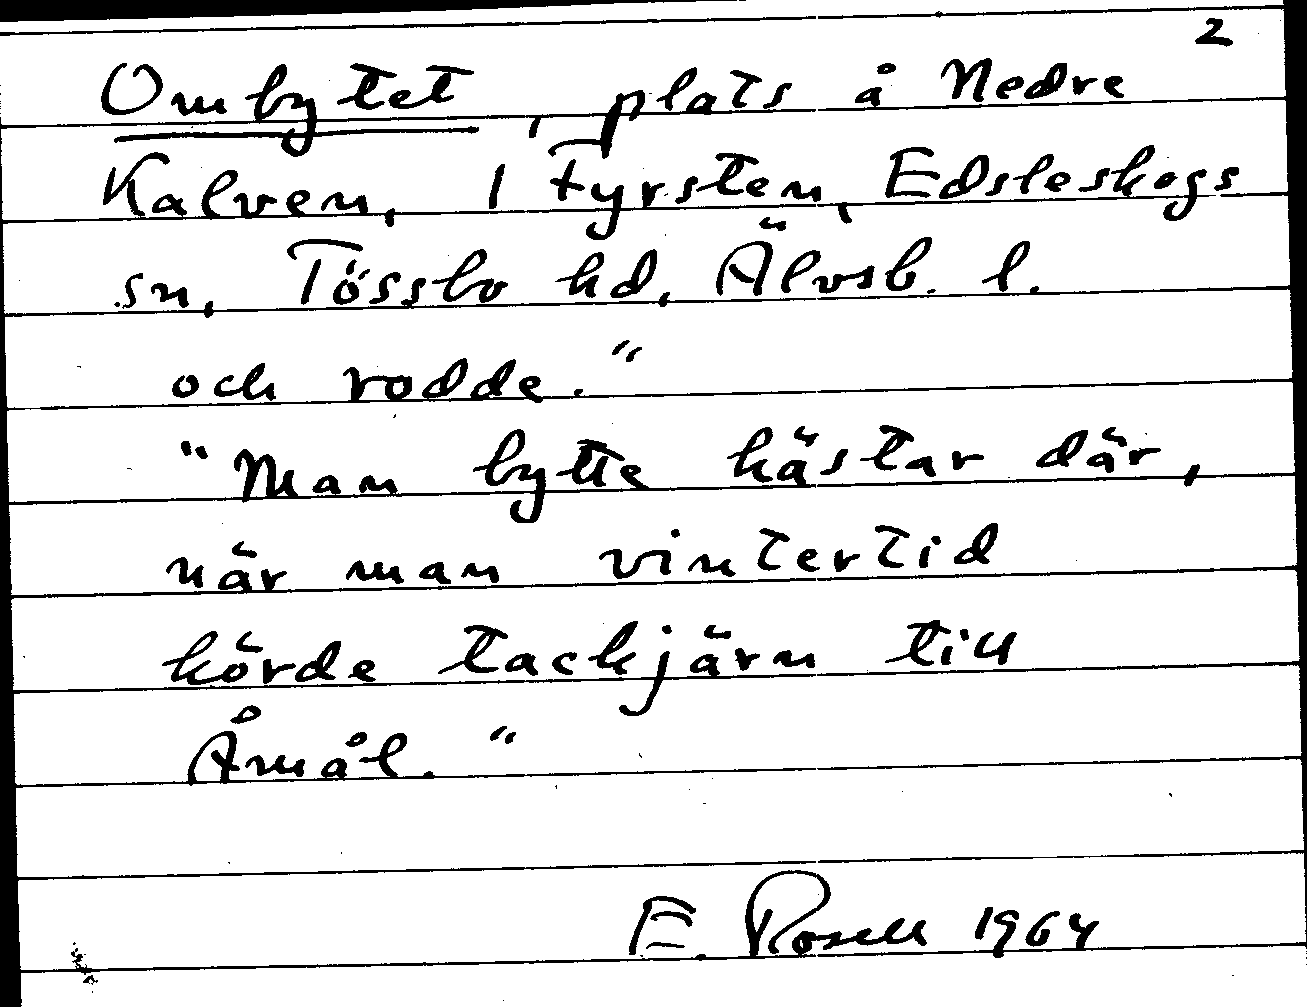 2
Ombytet, plats å Nedre
Kalven, 1 Fyrsten, Edsleskogs
sn, Tössbo hd, Älvsb. l.
och rodde."
"Man bytte hästar där,
när man vintertid
körde tackjärn till
Åmål."
E. Rosell 1964